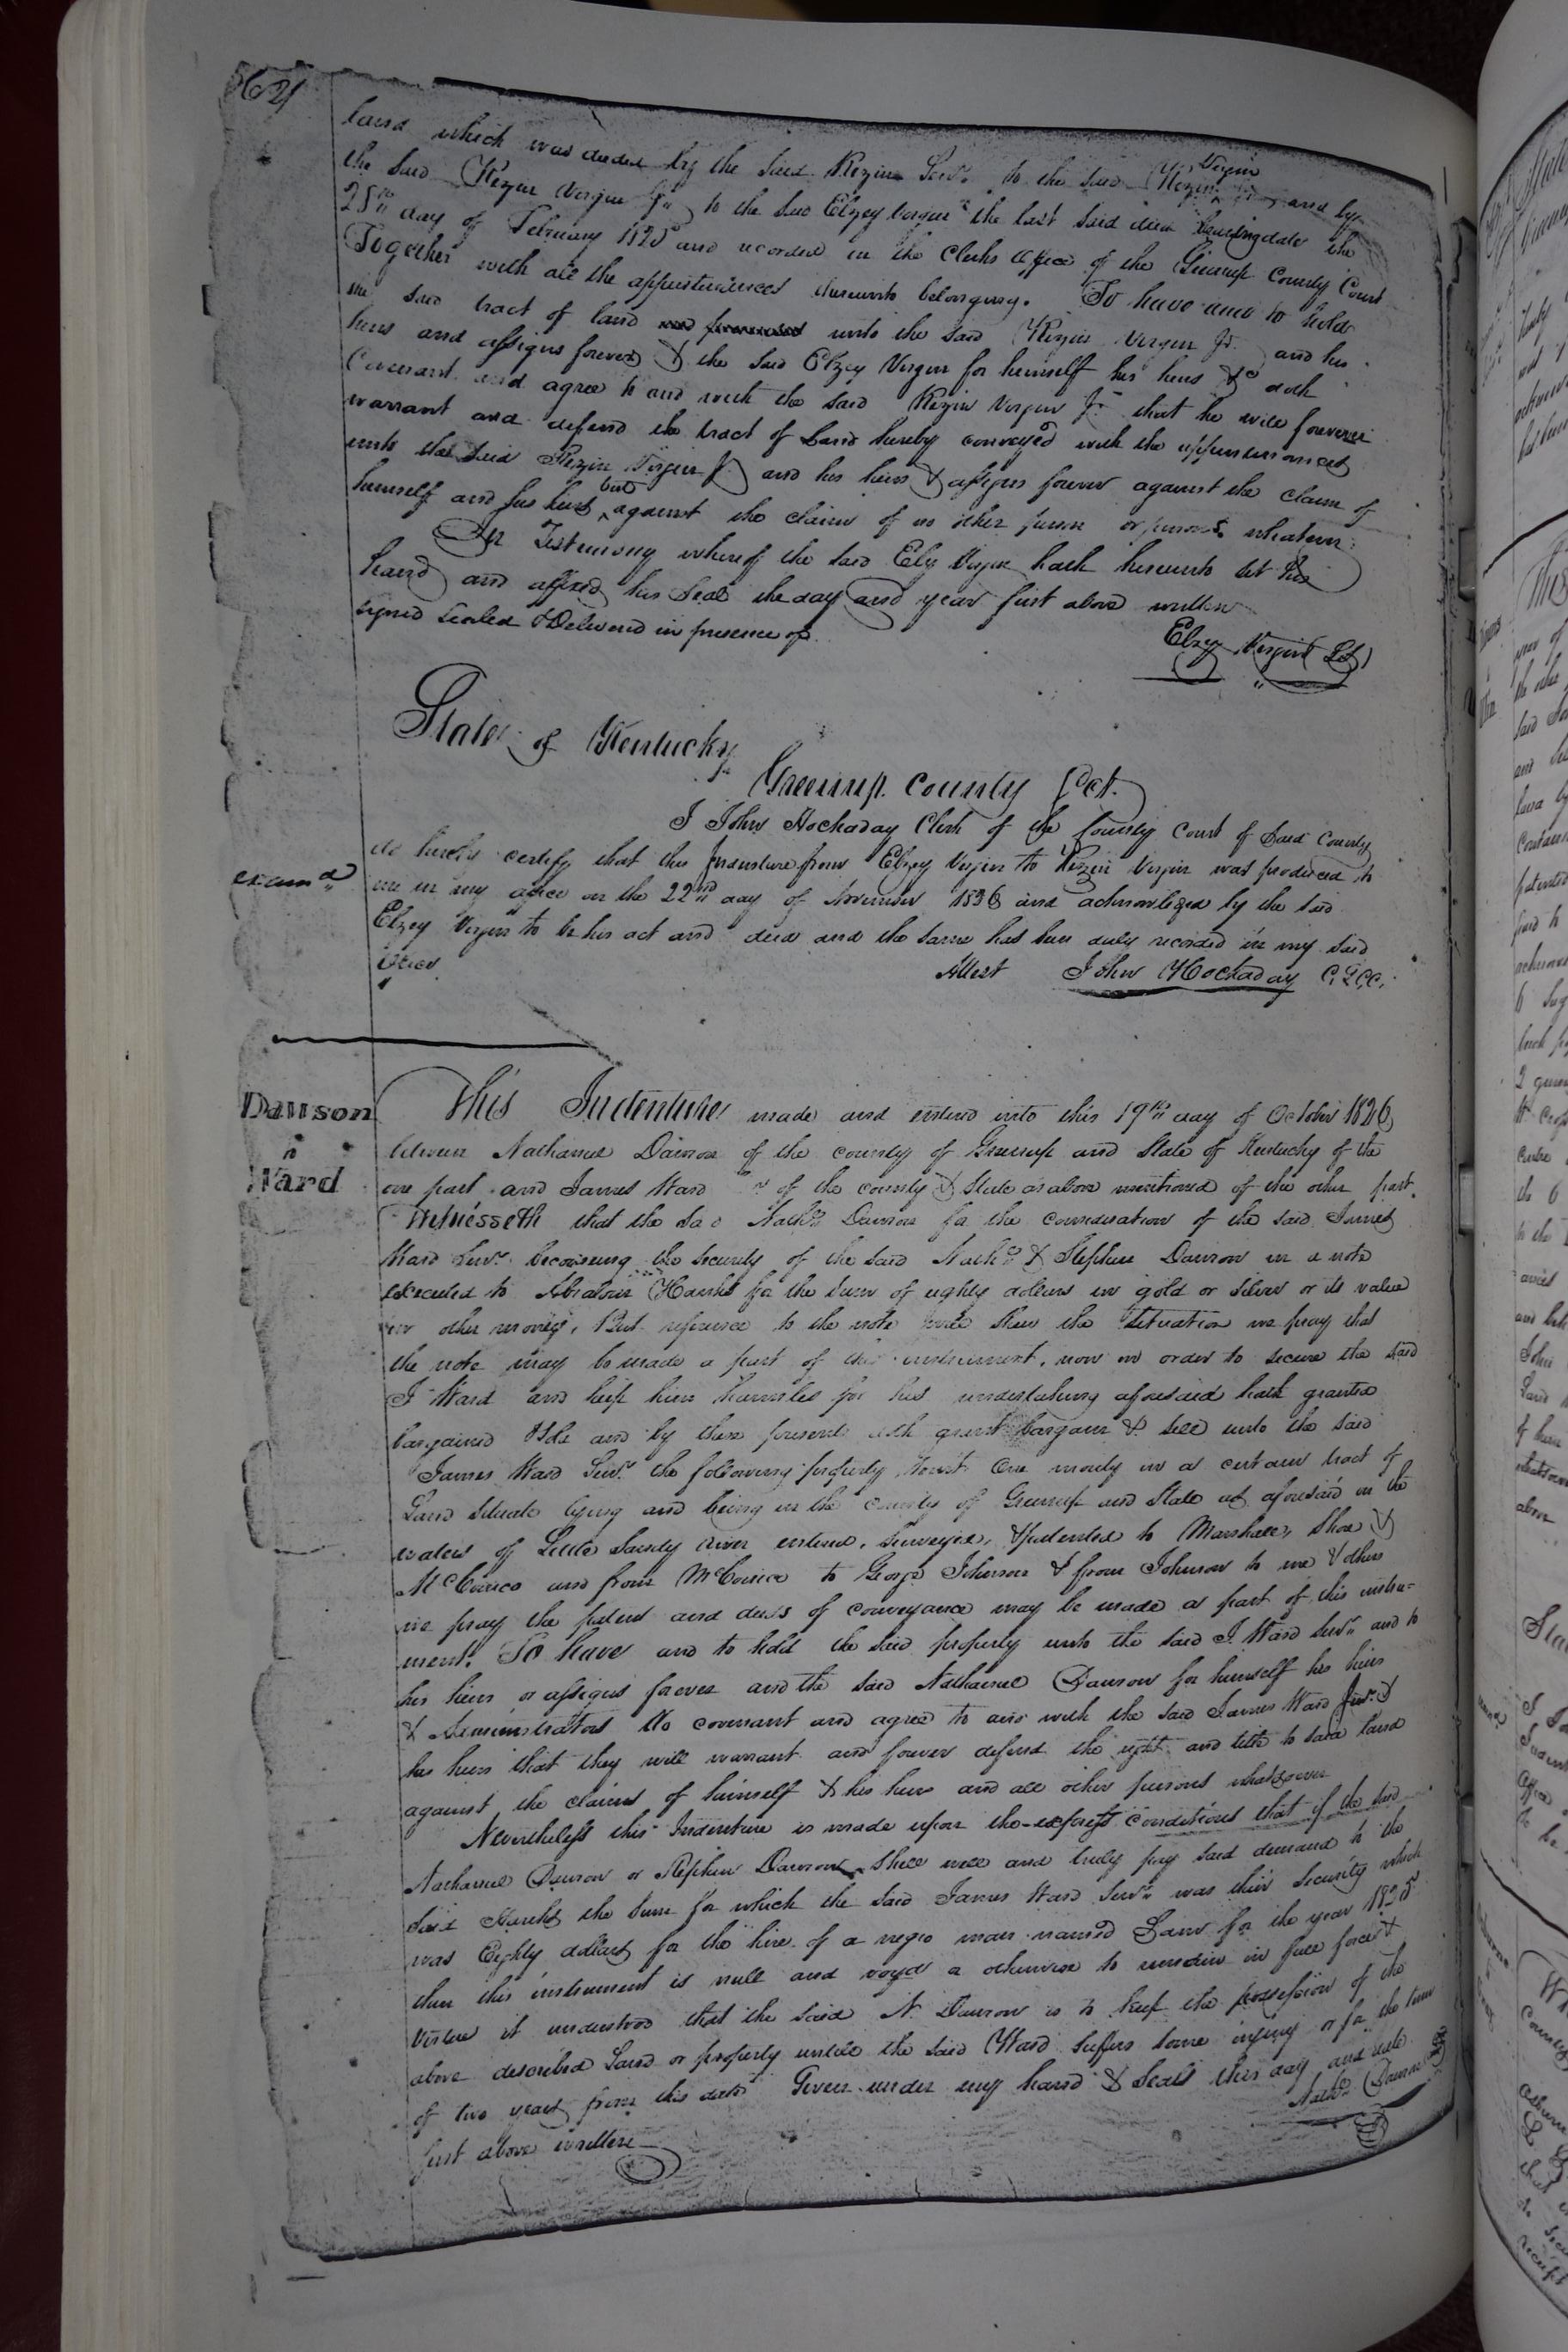 land which was deeded by the said Rezin Senr. to the said Rezin Virgin Jr and by
the said Rezin Virgin Jr to the said Elzey Virgin the last said deed bearing date the
25th day of February 1825 and recorded in the Clerks office of the Greenup County Court
Together with all the appurtenances thereunto belonging. To have and to hold
the said tract of land unto the said Rezin Virgin Jr. and his
heirs and assigns forever & the said Elzey Virgin for himself his heirs &c doth
Covenant and agree to and with the said Rezin Virgin Jr that he will forever
warrant and defend the tract of Land hereby conveyed with the appurtenances
unto the said Rezin Virgin Jr and his heirs & assigns forever against the claim of
himself and his heirs but against the claim of no other person or persons whatever
In Testimony whereof the said Elzy Virgin hath hereunto set his
hand and affixed his Seal the day and year first above written
signed sealed & Delivered in presence of
Elzey Virgin (LS)
State of Kentucky
Greenup County Sct.
I John Hockaday Clerk of the County Court of Said County
do hereby certify that this Indenture from Elzey Virgin to Rezin Virgin was produced to
examd
me in my office on the 22nd day of November 1836 and acknowledged by the said
Elzey Virgin to be his act and deed and the same has been duly recorded in my said
Office.
Attest John Hockaday C.G.C.C.
Dawson
to
Ward
This Indenture made and entered into this 19th day of October 1826
between Nathaniel Dawson of the county of Greenup and State of Kentucky of the
one part and James Ward of the county & State as above mentioned of the other part.
Witnesseth that the said Nathl Dawson for the consideration of the said James
Ward Senr. becoming the security of the said Nathl & Stephen Dawson in a note
executed to for the Sum of eighty dollars in gold or silver or its value
in other money, But reference to the note will shew the situation we pray that
the note may be made a part of this instrument, now in order to secure the said
J Ward and keep him harmless for his undertaking aforesaid hath granted
bargained & sold and by these presents doth grant bargain & sell unto the said
James Ward Senr. the following property towit One moiety in a certain tract of
Land situate lying and being in the county of Greenup and State as aforesaid on the
waters of Little Sandy river entered, surveyed, & patented to Marshall, &
and from to George Johnson & from Johnson to me & others
we pray the patent and deeds of conveyance may be made a part of this instru=
ment. To have and to hold the said property unto the said J. Ward Senr and to
his heirs or assigns forever and the said Nathaniel Dawson for himself his heirs
& Administrators do covenant and agree to and with the said James Ward Senr. &
his heirs that they will warrant and forever defend the right and title to said land
against the claims of himself & his heirs and all other persons whatsoever
Nevertheless this Indenture is made upon the express conditions that if the said
Nathaniel Dawson or Stephen Dawson shall well and truly pay said demand to the
said the sum for which the said James Ward Senr was their security which
was Eighty dollars for the hire of a negro man named Sam for the year 1825
then this instrument is null and voyd or otherwise to remain in full force &
virtue it understood that the said N. Dawson is to keep the possession of the
above described Land or property untill the said Ward suffers some injury or for the term
of two years from this date Given under my hand & Seals this day and date
first above written
Nathl Dawson